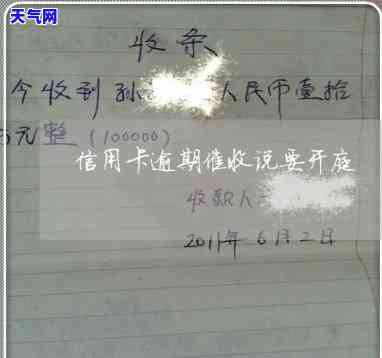 天气网
收条
今收到孙 人民币壹拾
元整(100000)
信用卡逾期催收说要开庭
收款人:
2011年6月2日